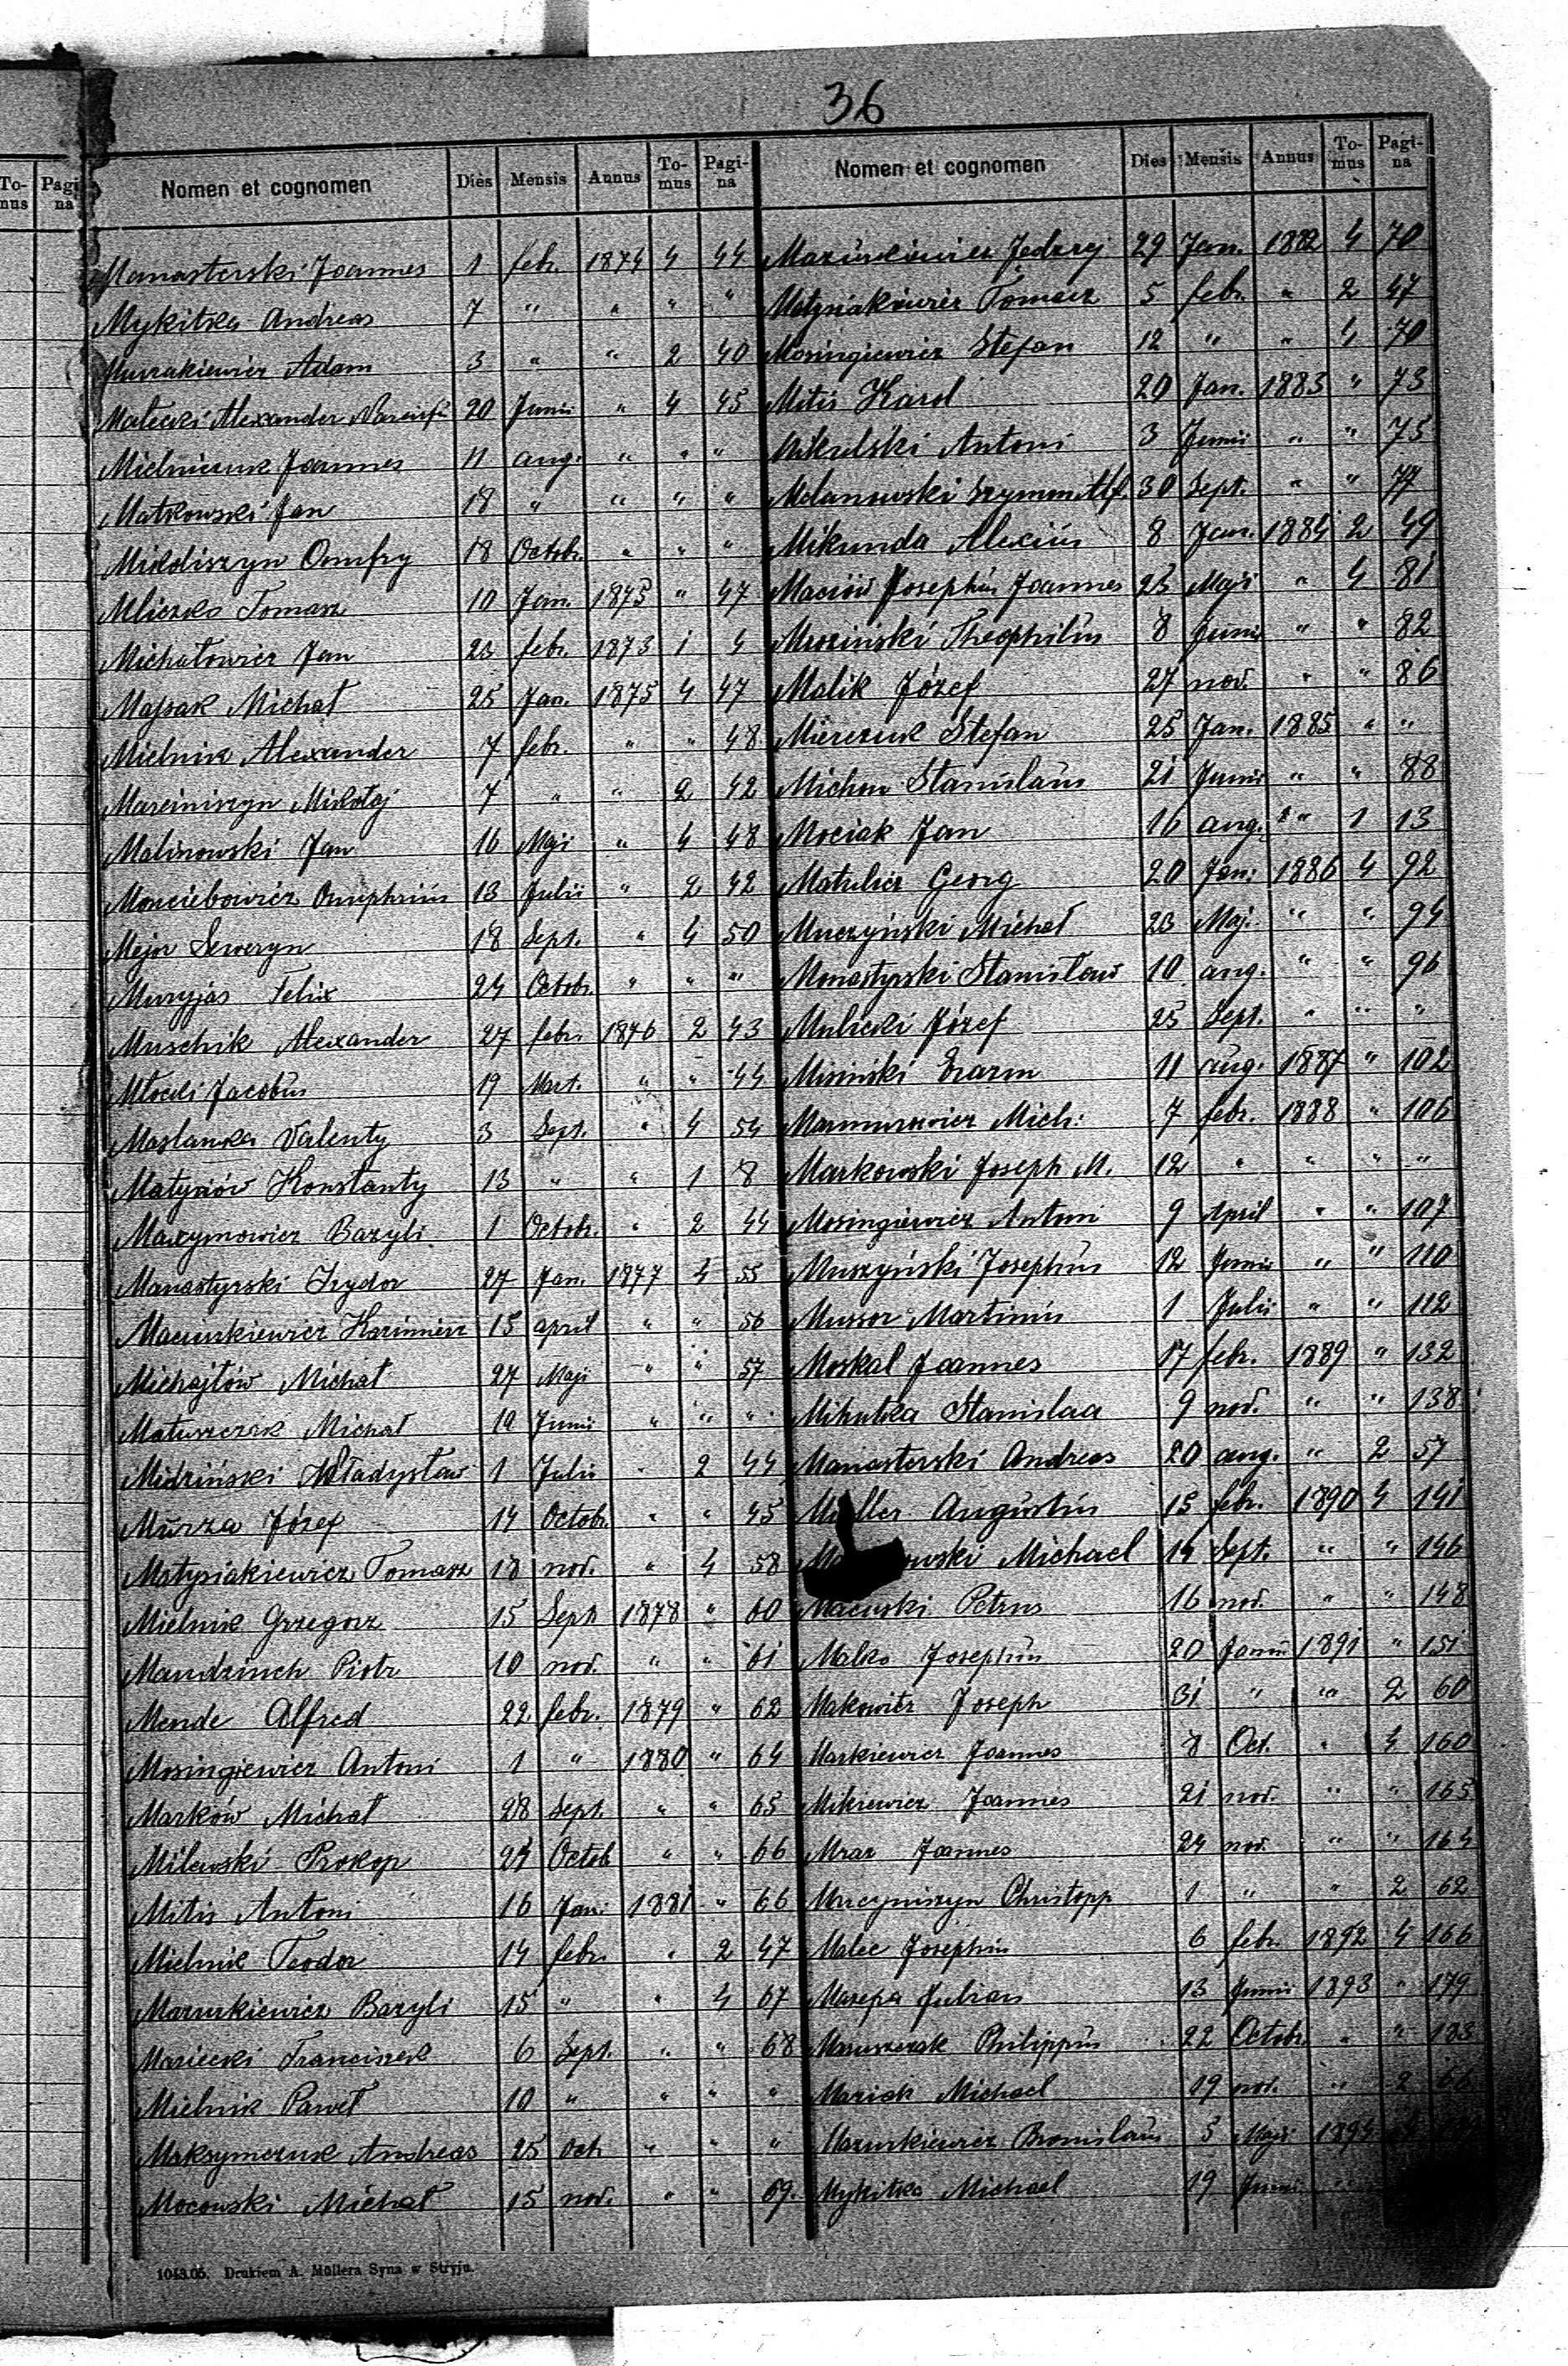 36
To-
mus
Pagi
na
Nomen et cognomen Dies Mensis Annus To-mus Pagi-na
Manasterski Joannes 1 febr. 1874 4 44
Mykitka Andreas 7 " " " "
Adam 3 " " 2 40
Malecki Alexander 20 Junii " 4 45
Mielniczuk Joannes 11 aug. " " "
Matkowski Jan 18 " " " "
Mikoliszyn Onufry 18 Octobr. " " "
Mliczko Tomasz 10 Jan. 1875 " 47
Michałowicz Jan 23 febr. 1873 1 4
Majsak Michał 25 Jan. 1875 4 47
Mielnik Alexander 7 febr. " " 48
Marciniszyn Mikołaj 7 " " 2 42
Malinowski Jan 16 Maji " 4 48
Monciebowicz Onuphrius 13 Julii " 2 42
Mejor Seweryn 18 Sept. " 4 50
Muryjas Felix 24 Octobr. " " "
Muschik Alexander 27 febr. 1876 2 43
Młocki Jacobus 19 Mart. " " 44
Maslanka Valenty 3 Sept. " 4 54
Matysiów Konstanty 13 " " 1 8
Maxymowicz Bazyli 1 Octobr. " 2 44
Manastyrski Izydor 27 Jan. 1877 4 55
Maciurkiewicz Kazimierz 15 april " " 56
Michajłów Michał 27 Maji " " 57
Matuszczak Michał 10 Junii " " "
Midziński Władysław 1 Julii " 2 44
Murza Józef 14 Octobr. " " 45
Matysiakiewicz Tomasz 18 nov. " 4 58
Mielnik Grzegorz 15 Sept 1878 " 60
Mandziuch Piotr 10 nov. " " 61
Mende Alfred 22 febr. 1879 " 62
Mosingiewicz Antoni 1 " 1880 " 64
Marków Michał 28 Sept. " " 65
Milewski Prokop 24 Octob " " 66
Mitis Antoni 16 Jan. 1881 " 66
Mielnik Teodor 14 febr. " 2 47
Mazurkiewicz Bazyli 15 " " 4 67
Maziecki Franciszek 6 Sept. " " 68
Mielnik Paweł 10 " " " "
Maksymczuk Andreas 25 Oct " " "
Mocowski Michał 15 nov. " " 69.
Nomen et cognomen Dies Mensis Annus To-mus Pagi-na
Mazurkiewicz Jędrzej 29 Jan. 1882 4 70
Matysiakiewicz Tomasz 5 febr. " 2 47
Mosingiewicz Stefan 12 " " 4 70
Mitis Karol 20 Jan. 1883 " 73
Mikulski Antoni 3 Junii " " 75
Melanowski Szymon Alf. 30 Sept. " " 77
Mikunda Alexius 8 Jan. 1884 2 49
Maciów Josephus Joannes 23 Maji " 4 81
Mrozinski Theophilus 8 Junii " " 82
Malik Józef 27 nov. " " 86
Mierczuk Stefan 25 Jan. 1885 " "
Michon Stanislaus 21 Junii " " 88
Mociak Jan 16 aug. " 1 13
Matulicz Georg 20 Jan. 1886 4 92
Muczyński Michał 23 Maj. " " 94
Monastyrski Stanisław 10 aug. " " 96
Mulicki Józef 25 Sept. " " "
Misiński Erazm 11 aug. 1887 " 102
Mich: 7 febr. 1888 " 106
Markowski Joseph M. 12 " " " "
Mosingiewicz Antoni 9 April " " 107
Muszyński Josephus 12 Junii " " 110
Mussor Martinus 1 Julii " " 112
Moskal Joannes 17 febr. 1889 " 132
Mihutka Stanislaa 9 nov. " " 138
Manasterski Andreas 20 aug. " 2 57
Müller Augustus 15 febr. 1890 4 141
Michael 14 Sept. " " 146
Macuski Petrus 16 nov. " " 148
Malko Josephus 20 Januii 1891 " 151
Makowitz Joseph 31 " " 2 60
Markiewicz Joannes 8 Oct. " 4 160
Mikiewicz Joannes 21 nov. " " 165
Mraz Joannes 24 nov. " " 164
Christopp 1 " " 2 62
Malec Josephus 6 febr. 1892 4 166
Mazepa Julian 13 Junii 1893 " 179
Maruszczak Philippus 22 Octobr. " " 183
Maziak Michael 19 nov. " 2 66
Mazurkiewicz Bronislaus 5 Maji 1894
Mykitka Michael 19 Junii "
1043.05. Drukiem A. Müllera Syna w Stryju.